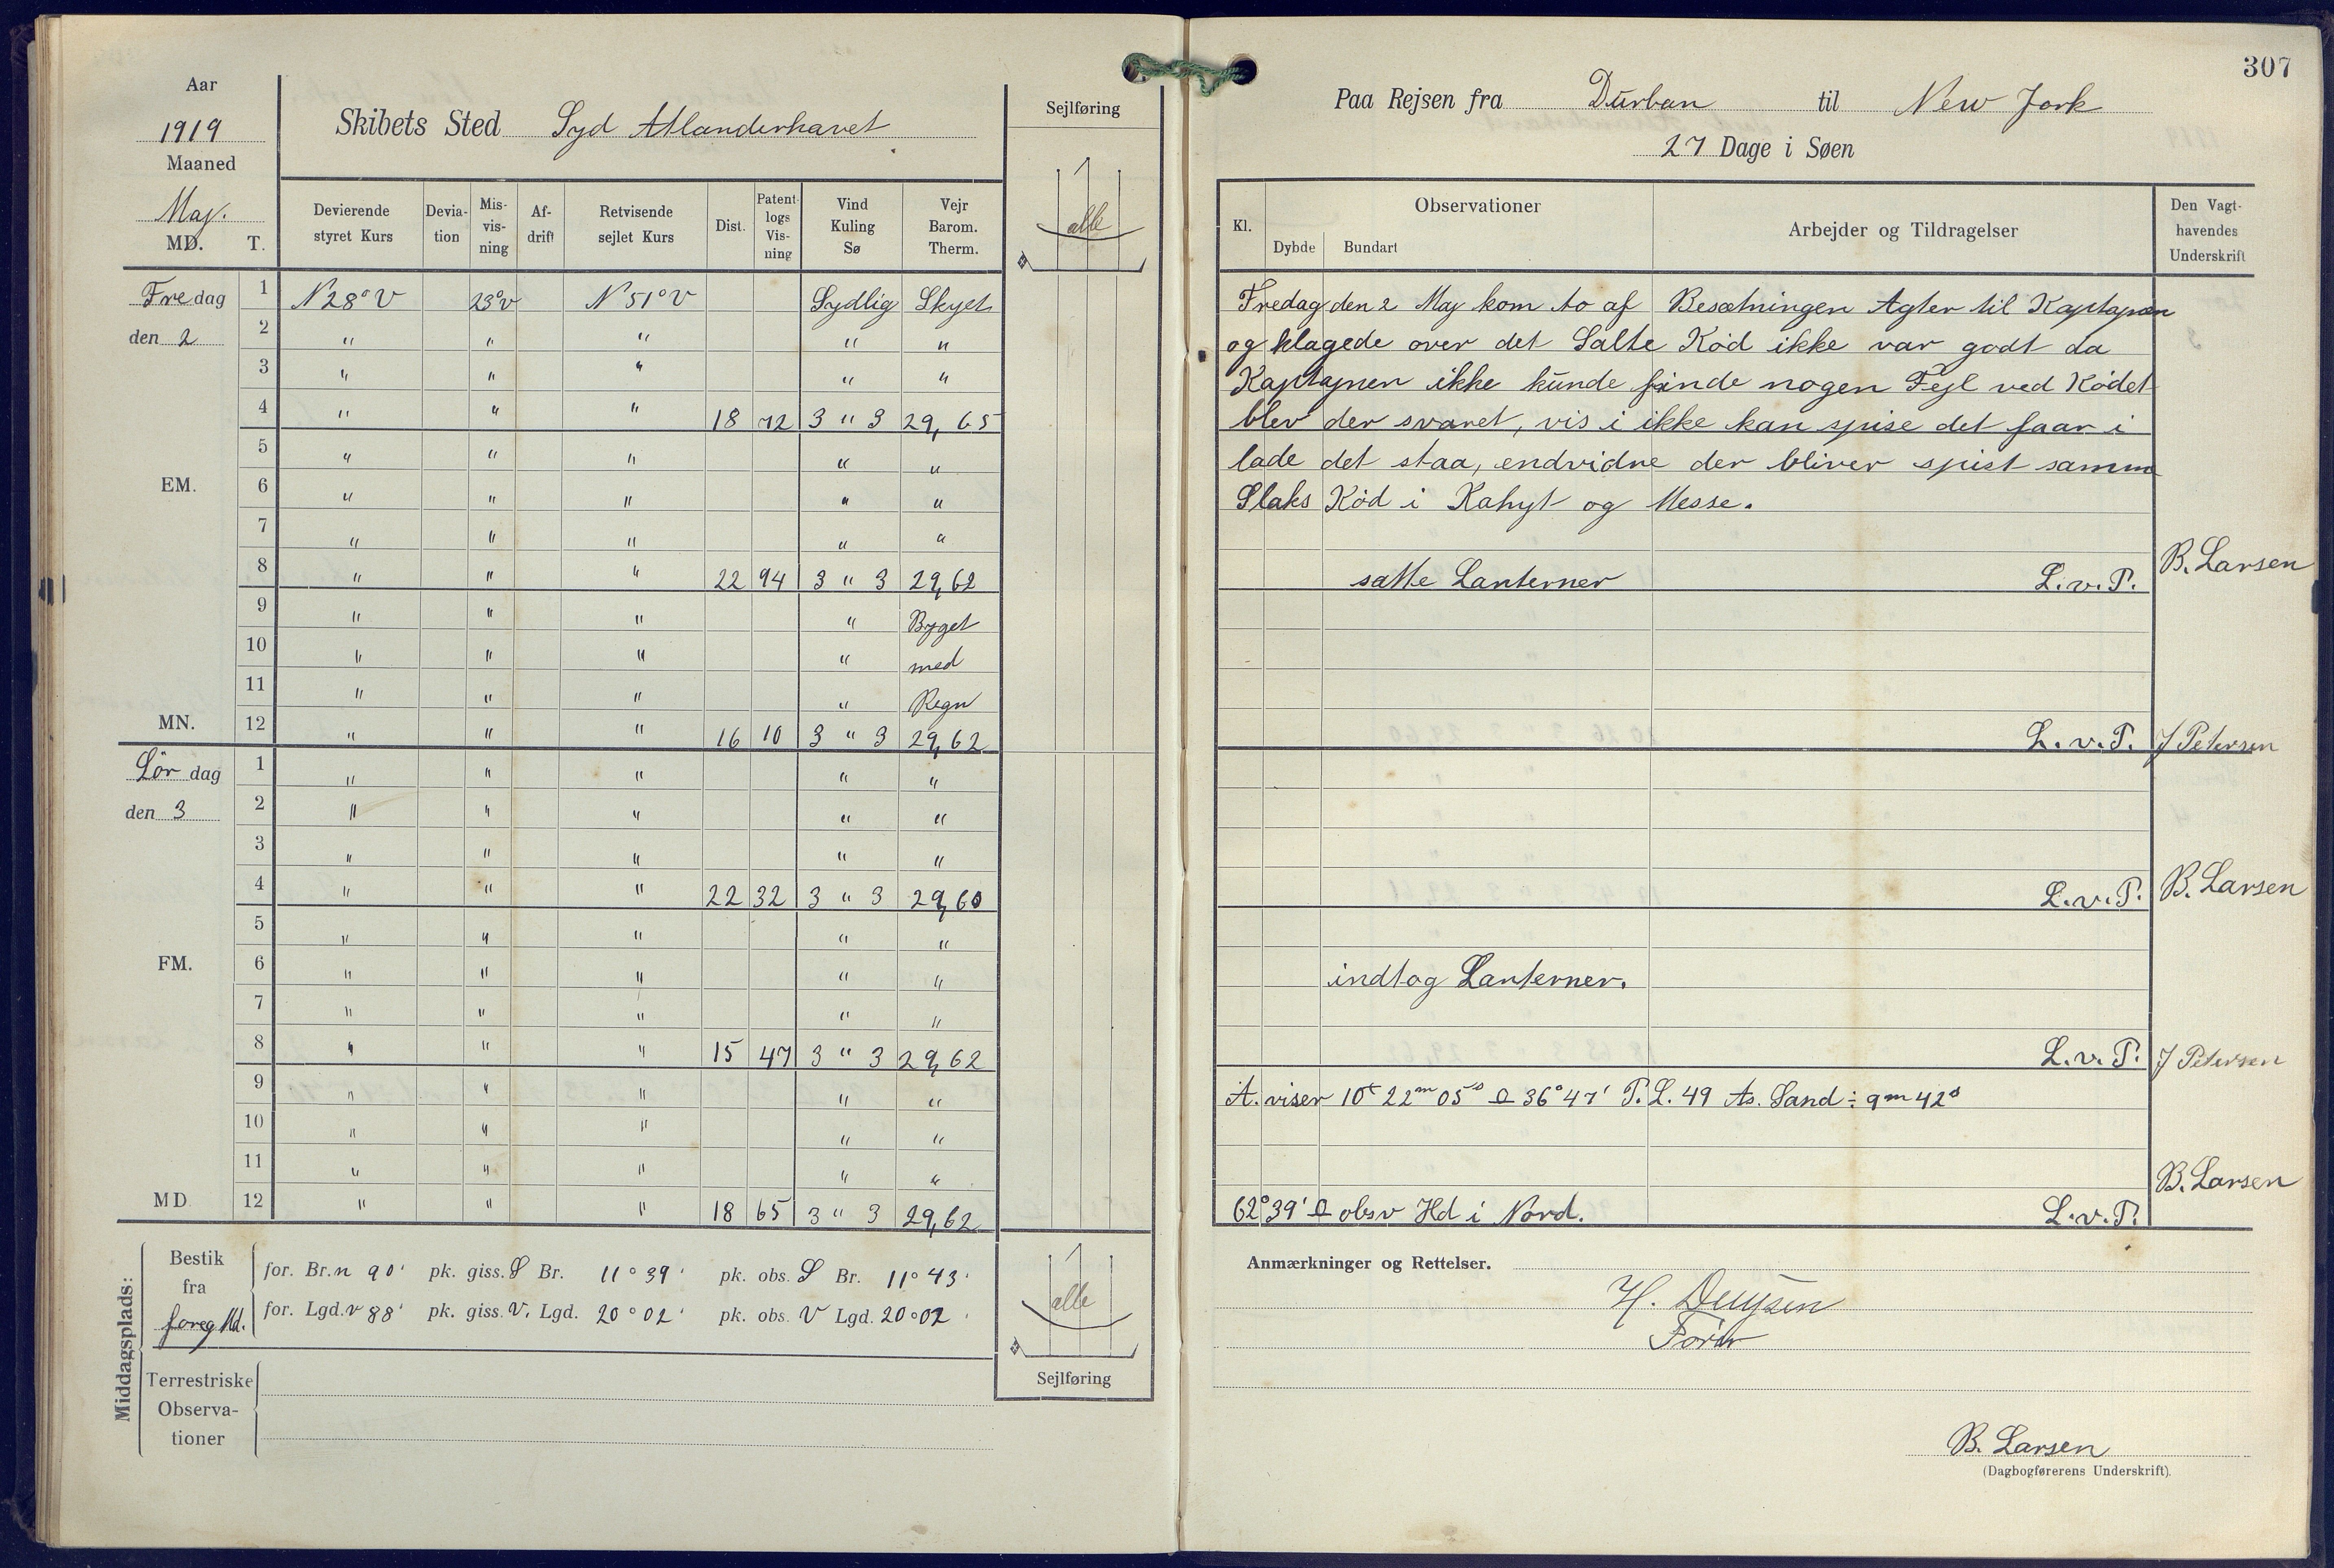 Aar
1919
Maaned
Maj.
MD. T.
Skibets Sted Syd Atlanderhavet
Sejlføring
Devierende styret Kurs Deviation Misvisning Afdrift Retvisende sejlet Kurs Dist. Patentlogs Visning Vind Kuling Sø Vejr Barom. Therm.
alle
Fredag 1 N 28° V 23° V N 51° V Sydlig Skyet
den 2 2 " " " " "
3 " " " " "
4 " " " 18 72 3 " 3 29,65
5 " " " " "
EM. 6 " " " " "
7 " " " " "
8 " " " 22 94 3 " 3 29,62
9 " " " " Byget
10 " " " " med
11 " " " " Regn
MN. 12 " " " 16 10 3 " 3 29,62
Lördag 1 " " " " "
den 3 2 " " " " "
3 " " " " "
4 " " " 22 32 3 " 3 29,60
5 " " " " "
FM. 6 " " " " "
7 " " " " "
8 " " " 15 47 3 " 3 29,62
9 " " " " "
10 " " " " "
11 " " " " "
MD 12 " " " 18 65 3 " 3 29,62
Middagsplads:
Bestik fra foreg Md.
for. Br. n 90' pk. giss. S Br. 11° 39' pk. obs. S Br. 11° 43'
for. Lgd. v 88' pk. giss. V. Lgd. 20° 02' pk. obs. V Lgd. 20° 02'
alle
Sejlføring
Terrestriske
Observa-
tioner
307
Paa Rejsen fra Durban til New Jork
27 Dage i Søen
Kl. Observationer Dybde Bundart Arbejder og Tildragelser Den Vagthavendes Underskrift
Fredag den 2 Maj kom to af Besætningen Agter til Kaptajnen
og klagede over det Salte Kód ikke var godt da
Kaptajnen ikke kunde finde nogen Fejl ved Kódet
blev der svaret, vis i ikke kan spise det faar i
lade det staa, endvidre der bliver spist samme
Slaks Kód i Kahyt og Messe.
satte Lanterner L.v.P. B. Larsen
L.v.P. J Petersen
L.v.P. B. Larsen
indtog Lanterner.
L.v.P. J Petersen
A. viser 10t 22m 05s ⍜ 36° 47' P.L. 49 As. Sand ÷ 9m 42s
B. Larsen
62° 39' ⍜ obsv Hd i Nord. L.v.P.
Anmærkninger og Rettelser.
H.
Förer
B. Larsen
(Dagbogførerens Underskrift).